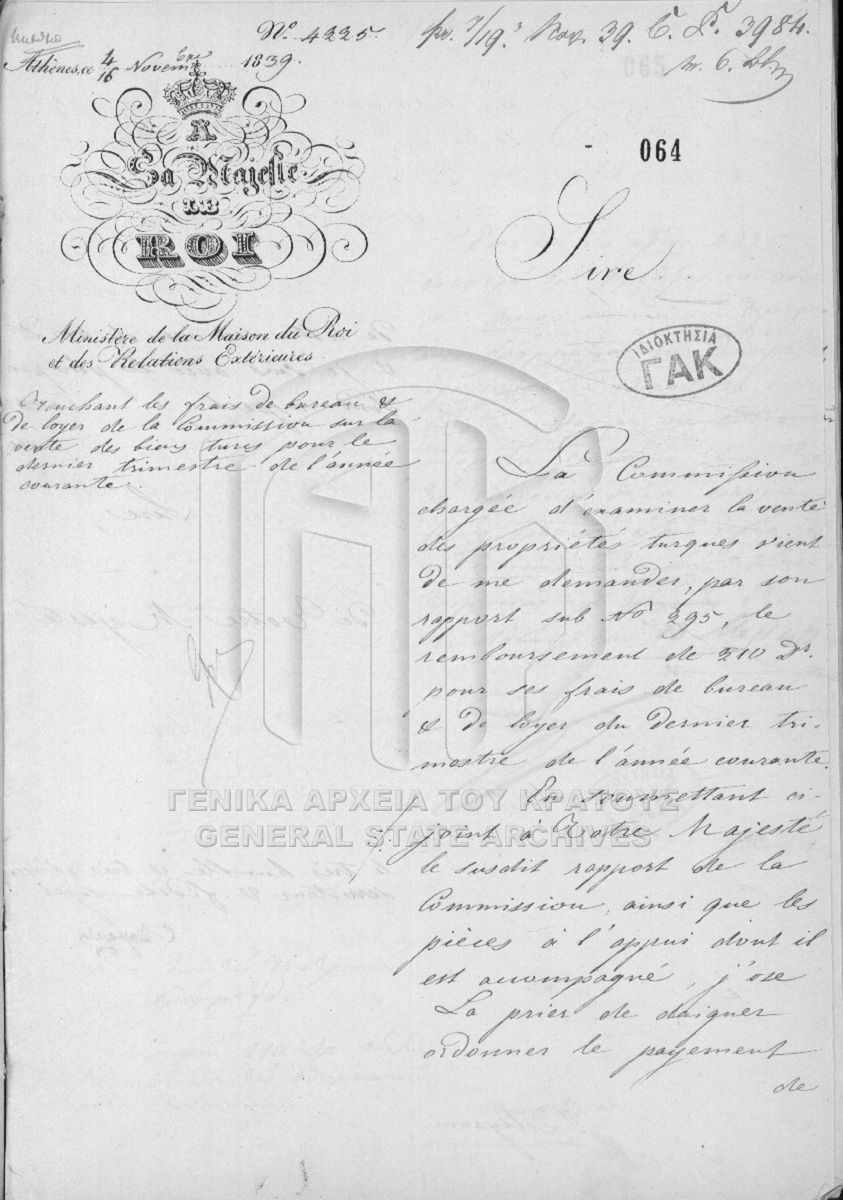 Nº 4225.
pr. 7/19. Nov. 39. C. P. 3984.
Athènes, ce 4/16 Novembre 1839.
065
064
A
Sa Majesté
LE
ROI
Sire
Ministère de la Maison du Roi
et des Relations Extérieures.
ΙΔΙΟΚΤΗΣΙΑ
ΓΑΚ
Touchant les frais de bureau &
de loyer de la Commission sur la
vente des biens turcs pour le
dernier trimestre de l'année
courante.
La Commission
chargée d'examiner la vente
des propriétés turques vient
de me demander, par son
rapport sub Nº 295, le
remboursement de 210 Dr.
pour ses frais de bureau
& de loyer du dernier tri-
mestre de l'année courante.
En soumettant ci-
joint à Votre Majesté
le susdit rapport de la
Commission, ainsi que les
pièces à l'appui dont il
est accompagné, j'ose
La prier de daigner
ordonner le payement
de
ΓΕΝΙΚΑ ΑΡΧΕΙΑ ΤΟΥ ΚΡΑΤΟΥΣ
GENERAL STATE ARCHIVES